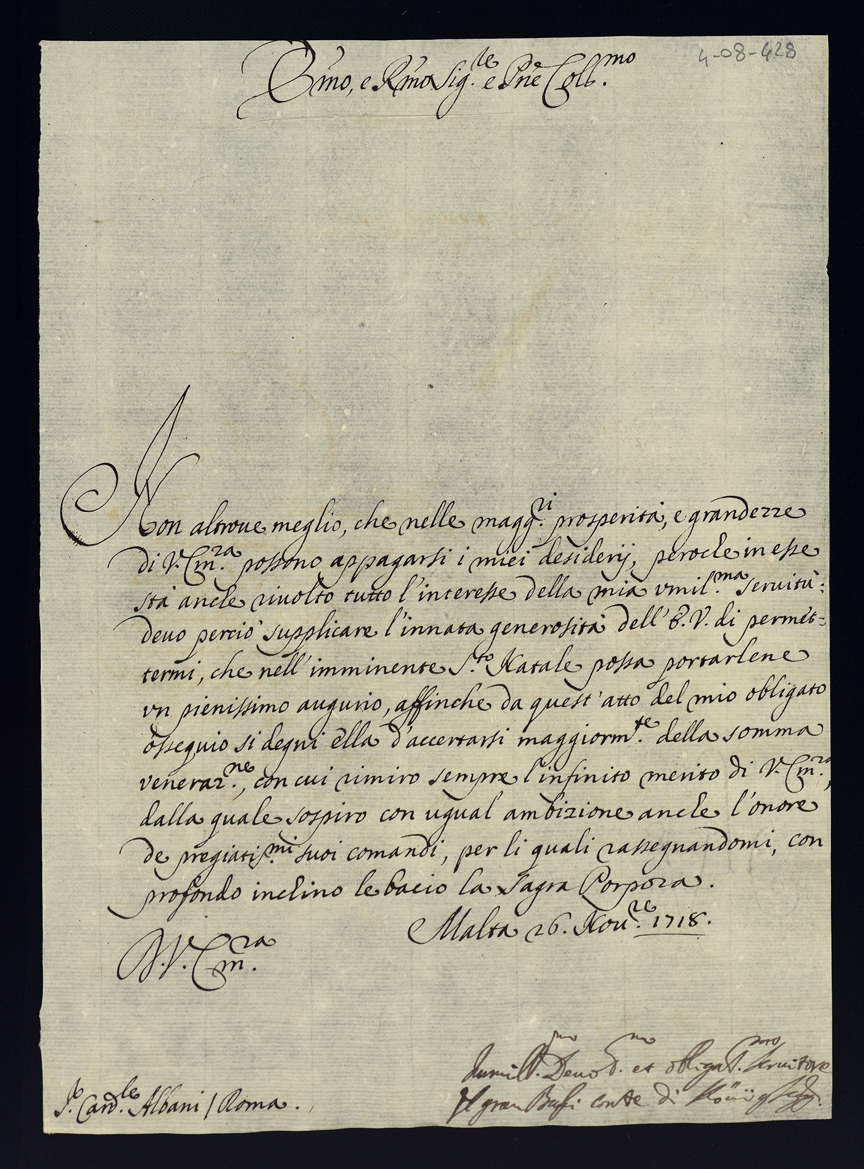 4-08-428
Emo, e Rmo Sig.re e Pne Coll.mo
Non altroue meglio, che nelle magg.ri prosperità, e grandezze
di V. Em.za possono appagarsi i miei desiderij, peroche in esse
stà anche riuolto tutto l'interesse della mia vmil.ma seruitù:
deuo perciò supplicare l'innata generosità dell'E.V. di permet=
termi, che nell'imminente S.to Natale possa portarlene
vn pienissimo augurio, affinche da quest'atto del mio obligato
osseguio si degni ella d'accertarsi maggiorm.te della somma
veneraz.ne, con cui rimiro sempre l'infinito merito di V. Em.za,
dalla quale sospiro con ugual ambizione anche l'onore
de pregiatis.mi suoi comandi, per li quali rassegnandomi, con
profondo inclino le bacio la Sagra Porpora.
Malta 26. Nou.re 1718.
D. V. Em.za
Humill.mo Deuot.mo et obligat.mo Seruitore
S.r Card.le Albani / Roma.
Il gran Bali conte di